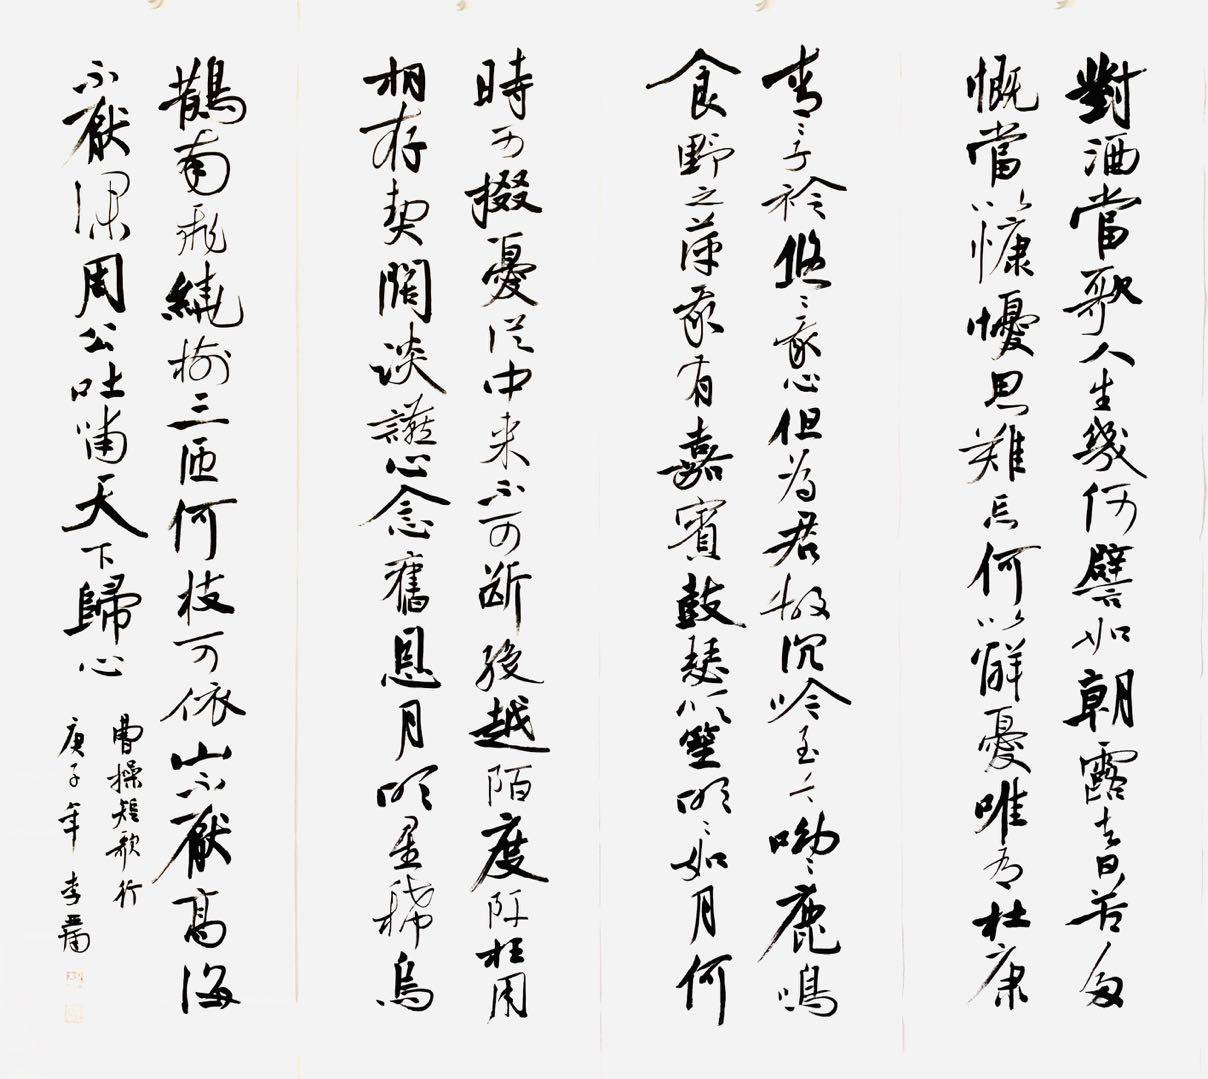 對酒當歌人生幾何譬如朝露去日苦多
慨當以慷懮思難忘何以解憂唯有杜康
青〻子衿悠〻我心但為君故沉吟至今呦〻鹿鳴
食野之苹我有嘉賓鼓瑟吹笙明〻如月何
時可掇憂從中来不可断絕越陌度阡枉用
相存契闊談讌心念舊恩月明星稀烏
鵲南飛繞樹三匝何枝可依山不厭高海
不厭深周公吐哺天下歸心
曹操短歌行
庚子年 李